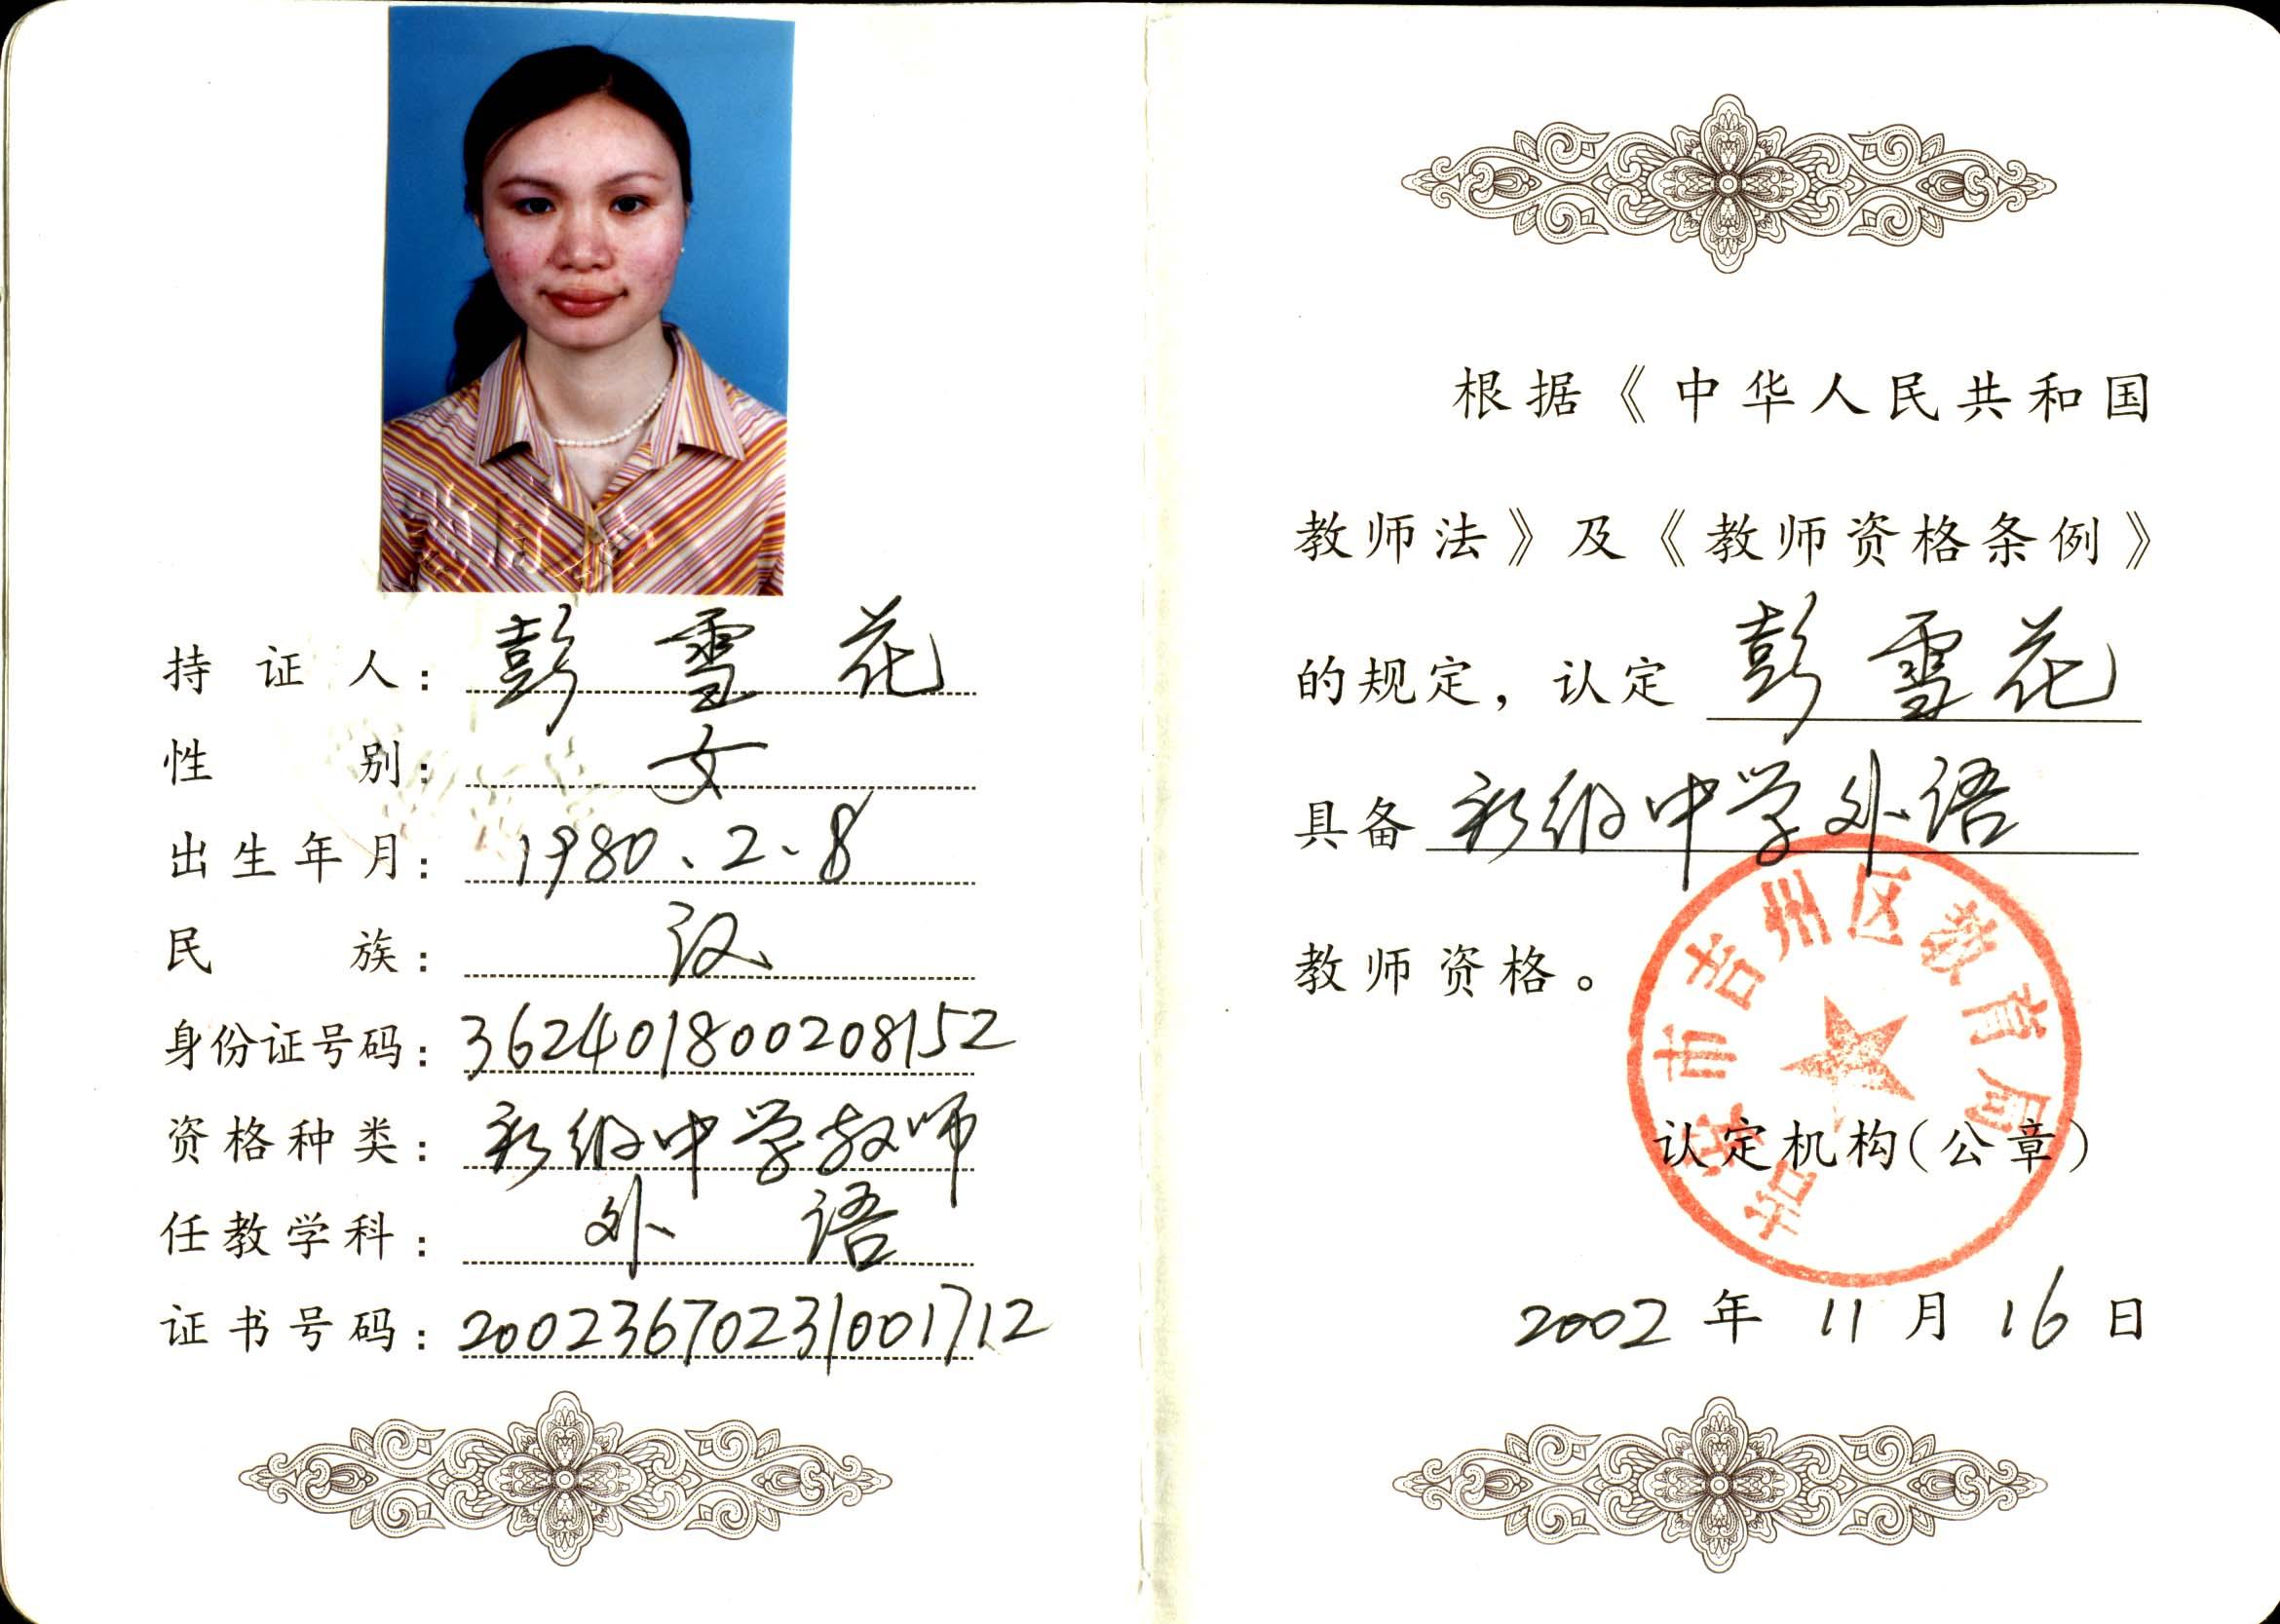 持证人：彭雪花
性别：女
出生年月：1980.2.8
民族：汉
身份证号码：362401800208152
资格种类：初级中学教师
任教学科：外语
证书号码：20023670231001712
根据《中华人民共和国
教师法》及《教师资格条例》
的规定，认定彭雪花
具备初级中学外语
教师资格。
吉安市吉州区教育局
认定机构(公章)
2002年11月16日